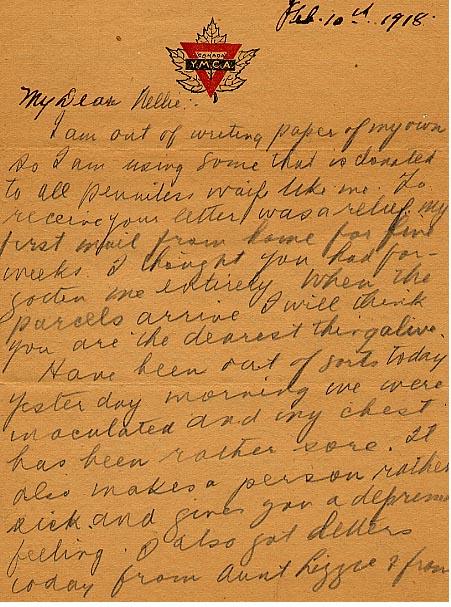 Feb. 10th 1918.
CANADA
Y.M.C.A.
My Dear Nellie:-
I am out of writing paper of my own
so I am using some that is donated
to all penniless waifs like me. To
receive your letter was a relief my
first mail from home for five
weeks. I thought you had for-
gotten me entirely. When the
parcels arrive I will think
you are the dearest thing alive.
Have been out of sorts today
yesterday morning we were
inoculated and my chest
has been rather sore. It
also makes a person rather
sick and gives you a depress
feeling. I also got letters
today from Aunt Lizzie & from